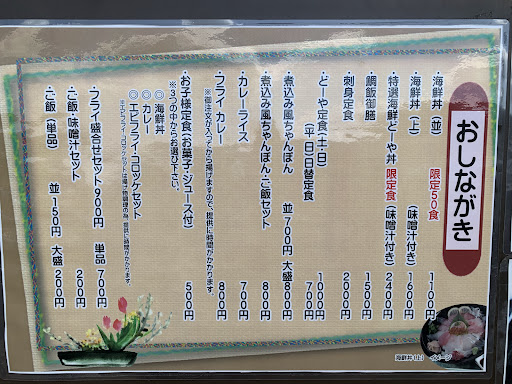 おしながき
・海鮮丼(並) 限定50食 1100円
・海鮮丼(上) (味噌汁付き) 1600円
・特選海鮮どーや丼 限定食 (味噌汁付き) 2400円
・鯛飯御膳 1500円
・刺身定食 2000円
・どーや定食(土・日) 1000円
(平 日)日替定食 700円
・煮込み風ちゃんぽん 並 700円 大盛 800円
・煮込み風ちゃんぽん・ご飯セット 800円
・カレーライス 700円
・フライ カレー 800円
※御注文が入ってから揚げますので、提供に時間がかかります。
・お子様定食(お菓子・ジュース付) 500円
※3つの中からお選び下さい。
◎ 海鮮丼
◎ カレー
◎ エビフライ・コロッケセット
※エビフライ・コロッケセットは揚げ物調理の為、提供に時間がかかります。
・フライ盛合せセット900円 単品 700円
・ご飯・味噌汁セット 200円
・ご飯(単品) 並 150円 大盛 200円
海鮮丼(上) イメージ